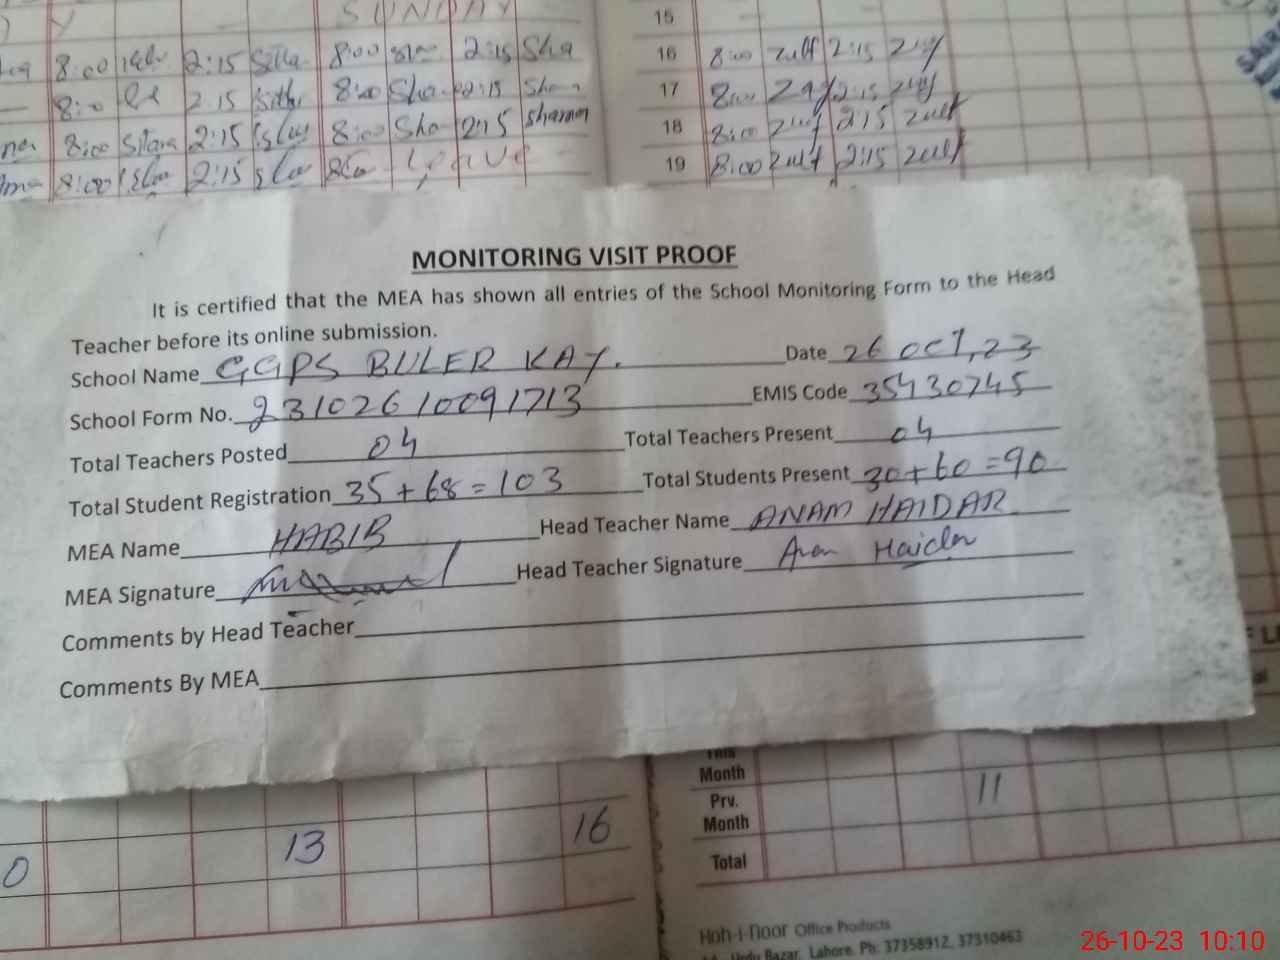 SUNDAY
8:00 2:15 Sitta 8:00 2:15 Sha
8:0 2.15 8:00 Sha 2:15 Sha
8:00 Sitara 2:15 8:00 Sho 2:15 sharmm
8:00 2:15 Leave
15
16 8:00 zulf 2:15
17 8:00 2:15
18 8:00 2:15 zulf
19 8:00 zulf 2:15 zulf
MONITORING VISIT PROOF
It is certified that the MEA has shown all entries of the School Monitoring Form to the Head
Teacher before its online submission.
School Name GGPS BULER KAY. Date 26 OCT, 23
School Form No. 23102610091713 EMIS Code 35430745
Total Teachers Posted 04 Total Teachers Present 04
Total Student Registration 35+68=103 Total Students Present 30+60=90
MEA Name HABIB Head Teacher Name ANAM HAIDAR
MEA Signature Head Teacher Signature Haider
Comments by Head Teacher
Comments By MEA
This
Month
Prv. 11
Month
Total
0 13 16
Hoh-i-noor Office Products
Urdu Bazar, Lahore. Ph: 37358912, 37310463
26-10-23 10:10